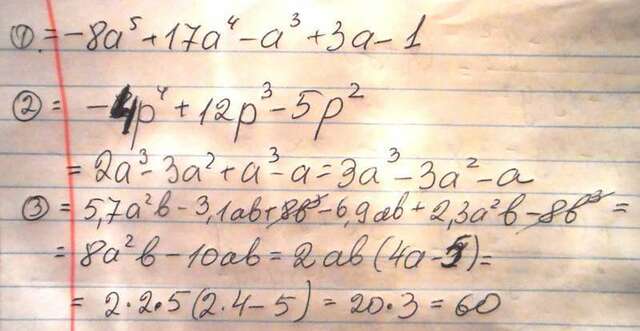 ① = -8a⁵ + 17a⁴ - a³ + 3a - 1
② = -4p⁴ + 12p³ - 5p²
= 2a³ - 3a² + a³ - a = 3a³ - 3a² - a
③ = 5,7a²b - 3,1ab + 8b³ - 6,9ab + 2,3a²b - 8b³ =
= 8a²b - 10ab = 2ab(4a - 5) =
= 2·2·5(2·4 - 5) = 20·3 = 60